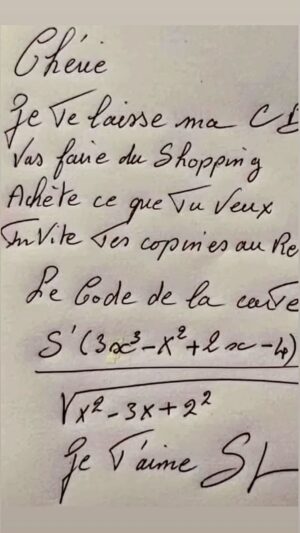 Chérie
Je Te laisse ma C
Vas faire du Shopping
Achète ce que Tu Veux
InVite Tes copines au Re
Le Code de la carte
S' (3x³-x²+2x-4)
√x²-3x+2²
Je T'aime SL